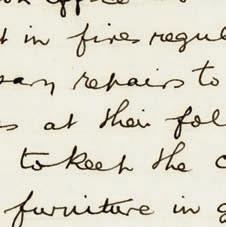 office
t in fires regul
sary repairs to
s at their fol
to keep the c
furniture in g